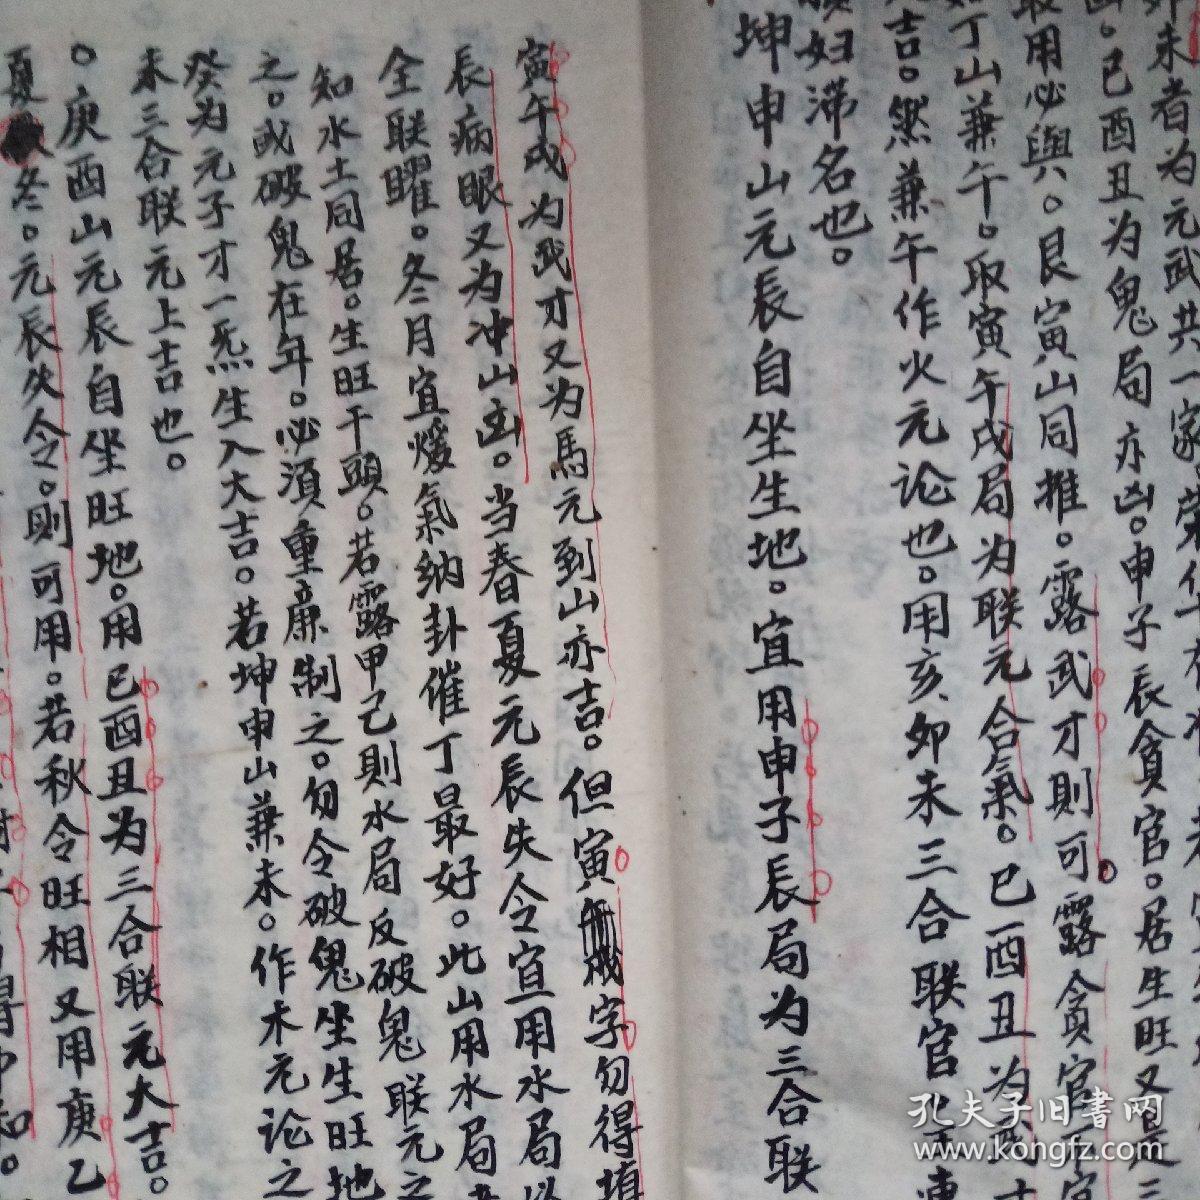 卯未者为元武共一家
凶。巳酉丑为鬼局亦凶。申子辰貪官。居生旺又是
最用必與。艮寅山同推。露武才則可露貪官
丁山兼午。取寅午戌局为联元合氣。巳酉丑为武
吉。然兼午作火元论也。用亥卯未三合联官
妇滞名也。
坤申山元辰自坐生地。宜用申子辰局为三合联
寅午戌为武才又为馬元到山亦吉。但寅字勿得填
辰病眼又为冲山凶。当春夏元辰失令宜用水局以
全联曜。冬月宜煖氣纳卦催丁最好。此山用水局
知水土同居。生旺干頭。若露甲己則水局反破鬼联元之
之。或破鬼在年。必須重廉制之。勿令破鬼坐生旺地
癸为元子才一炁生入大吉。若坤申山兼未。作木元论之
未三合联元上吉也。
。庚酉山元辰自坐旺地。用巳酉丑为三合联元大吉。
夏冬。元辰失令。則可用。若秋令旺相又用庚乙
孔夫子旧書网
www.kongfz.com